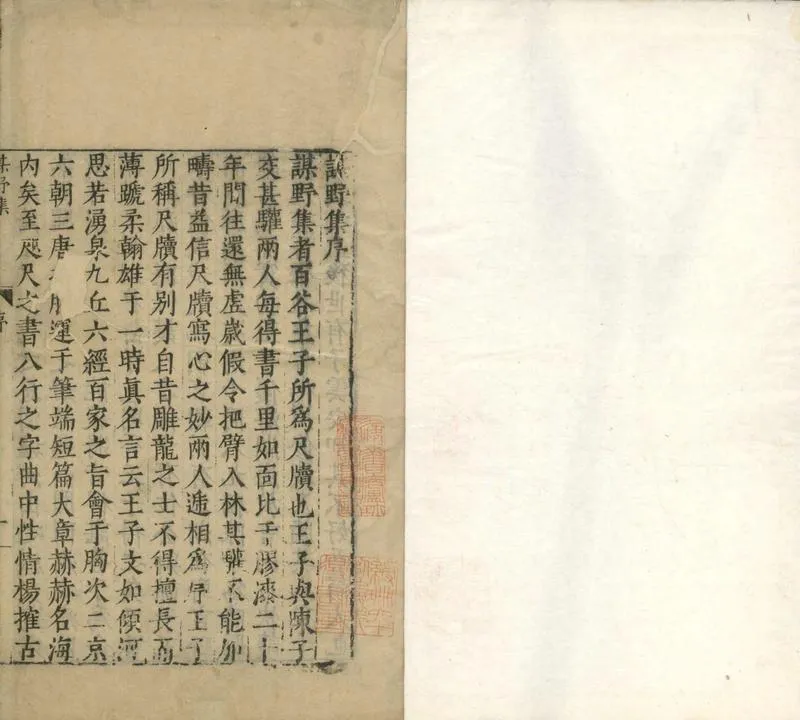 謀野集序
謀野集者百谷王子所爲尺牘也王子與陳子
交甚驩兩人每得書千里如面比于膠漆二十
年間往還無虛歲假令把臂入林其驩不能加
疇昔益信尺牘寫心之妙兩人遞相爲序王子
所稱尺牘有别才自昔雕龍之士不得擅長而
薄蹏柔翰雄于一時眞名言云王子文如傾河
思若湧泉九丘六經百家之旨會于胸次二京
六朝三唐運于筆端短篇大章赫赫名海
内矣至咫尺之書八行之字曲中性情楊搉古
謀野集 序